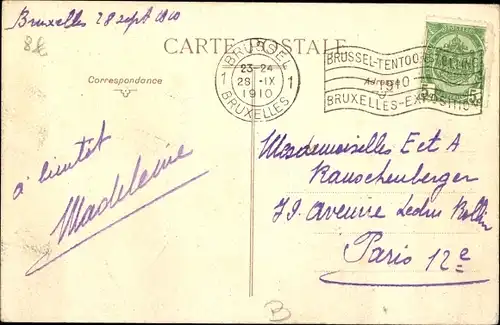 Bruxelles 28 sept 1910
8€
CARTE POSTALE
Correspondance
Adresse
BRUSSEL
1 23-24 1
28 -IX
1910
BRUXELLES
BRUSSEL-TENTOO
1910
BRUXELLES-EXPOSITIO
5 5
à bientôt
Madeleine
Mesdemoiselles E et A
Rauschenberger
79. Avenue Ledru Rollin
Paris 12e
B